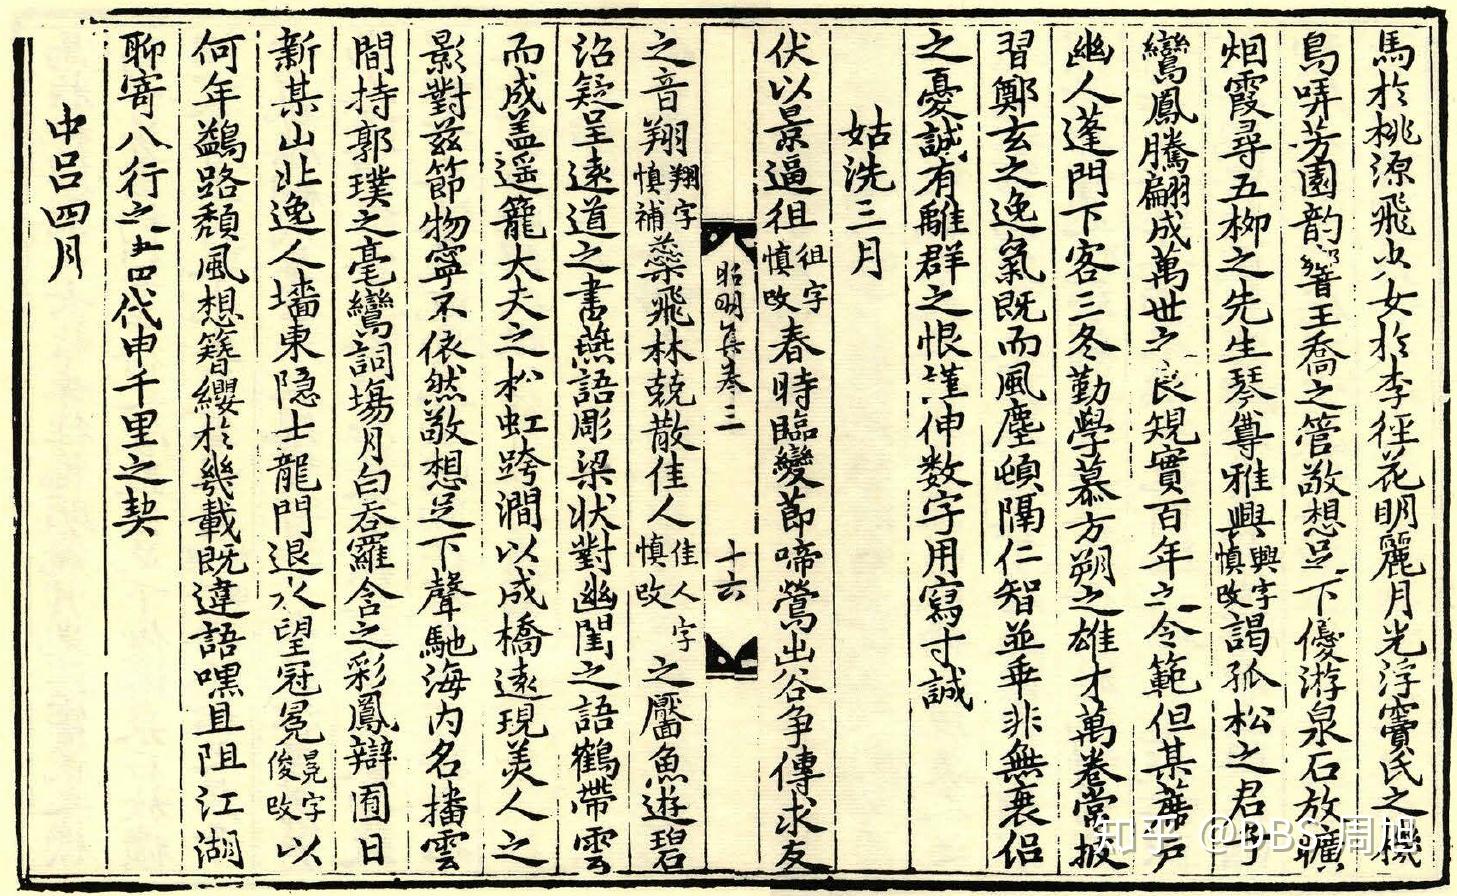 馬於桃源飛少女於李徑花明麗月光浮竇氏之機
鳥哢芳園韵響王喬之管敬想足下優游泉石放曠
烟霞尋五柳之先生琴尊雅興興字慎改謁孤松之君子
鸞鳳騰翩成萬世之良規實百年之令範但某蓽户
幽人蓬門下客三冬勤學慕方朔之雄才萬卷常披
習鄭玄之逸氣既而風塵頓隔仁智並乖非無衰侣
之憂誠有離群之恨謹伸数字用寫寸誠
姑洗三月
伏以景逼徂徂字慎改春時臨變節啼鶯出谷争傳求友
昭明集卷三
十六
之音翔翔字慎補蘂飛林競散佳人佳人字慎改之靨魚遊碧
沼疑呈遠道之書燕語彫梁状對幽閨之語鶴帶雲
而成盖遥籠大夫之松虹跨澗以成橋遠現美人之
影對茲節物寧不依然敬想足下聲馳海内名播雲
間持郭璞之毫鸞詞場月白吞羅含之彩鳳辯囿日
新某山北逸人墻東隐士龍門退水望冠冕冕字俊改以
何年鷁路頹風想簪纓於幾載既違語嘿且阻江湖
聊寄八行之書代申千里之契
中吕四月
知乎 @DBS 周旭